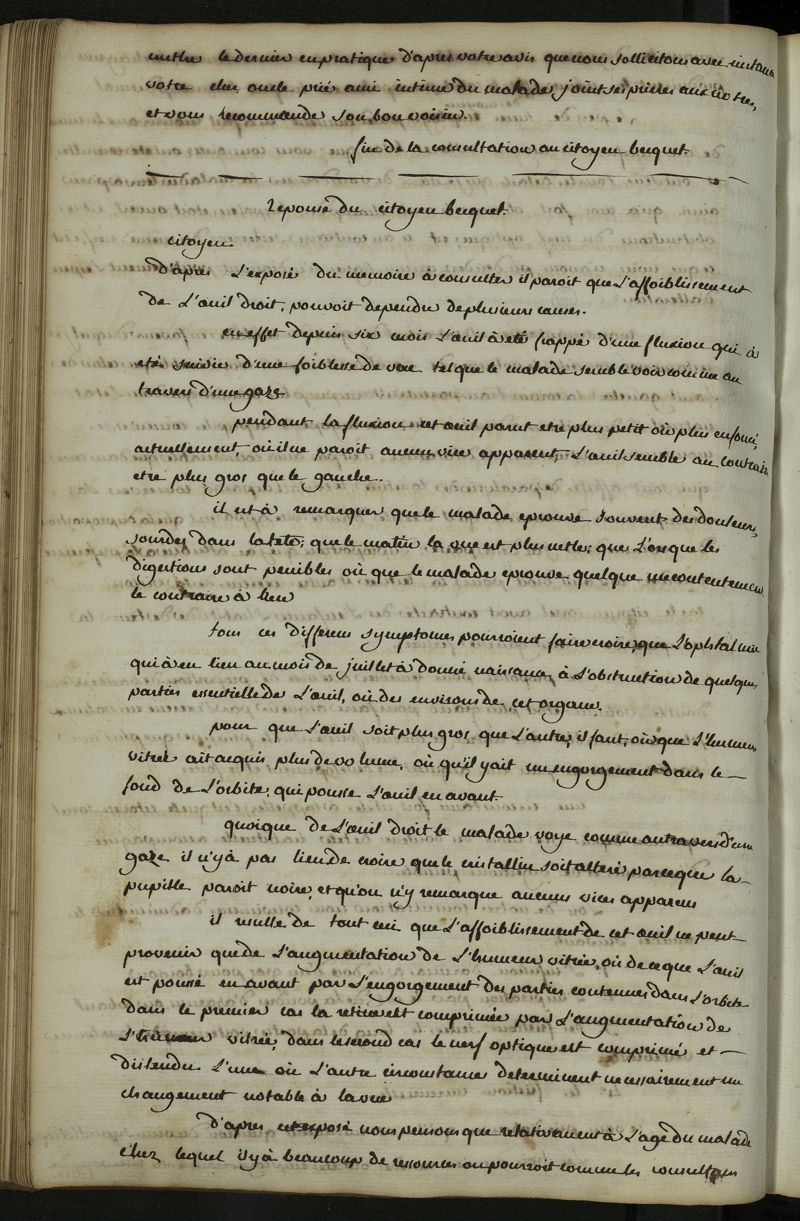 mettre le dernier en pratique d'apres votre avis que nous sollicitons avec instance
votre cher oncle prié ami intime du malade joint ses prieres aux notres,
et vous recommande son bon voisin.
fin de la consultation au citoyen becquet.
Reponse du citoyen becquet.
citoyen
D'après L'exposé du memoire à consulter il paroit que L'affoiblissement
de L'oeuil droit, pouvoit dependre de plusieurs causes.
en effet depuis six mois L'oeuil à eté frappé d'une fluxion qui à
eté suivie d'une foiblesse de vue tel que le malade semble voir comme au
travers d'une gaze
pendant la fluxion cet oeuil parut etre plus petit où plus enfoncé,
actuellement où il ne paroit aucun vice apparent, L'oeuil semble au contraire
etre plus gros que le gauche.
il est à remarquer que le malade eprouve souvent des douleurs
sourdes dans la tete; que le matin la vue est plus nette; que Lorsque les
digestions sont penibles où que le malade eprouve quelque mecontentement
le contraire à lieu
tous ces differens symptomes pourroient faire croire, que L'ophtalmie
qui à eu lieu au mois de juillet à donné naissance à L'obstruction de quelques
parties essentielle de L'oeuil, où des environs de cet organe.
pour que L'oeuil soit plus gros que L'autre, il faut, où que L'humeur
vitrée ait acquis plus de volume, où qu'il y ait un engorgement dans le
fond de L'orbite, qui pousse L'oeuil en avant.
quoique de L'oeuil droit le malade voye comme au travers d'une
gaze il n'y à pas lieu de croire que le cristallin soit alteré parceque la
pupille paroit noire, et qu'on n'y remarque aucuns vices apparens
il resulte de tout ceci que L'affoiblissement de cet oeuil ne peut
provenir que de L'augmentation de L'humeur vitrée, où de ce que L'oeuil
est poussé en avant par L'engorgement des parties contenues dans L'orbite
dans le premier cas la retine est comprimée par L'augmentation de
L'humeur vitrée, dans le second cas le nerf optique est comprimé et
distendu L'une où L'autre circonstance determinent necessairement un
changement notable à la vue
D'apres cet exposé nous pensons que relativement à L'age du malade
chez lequel il y à beaucoup de ressources on pourroit comme les consultans